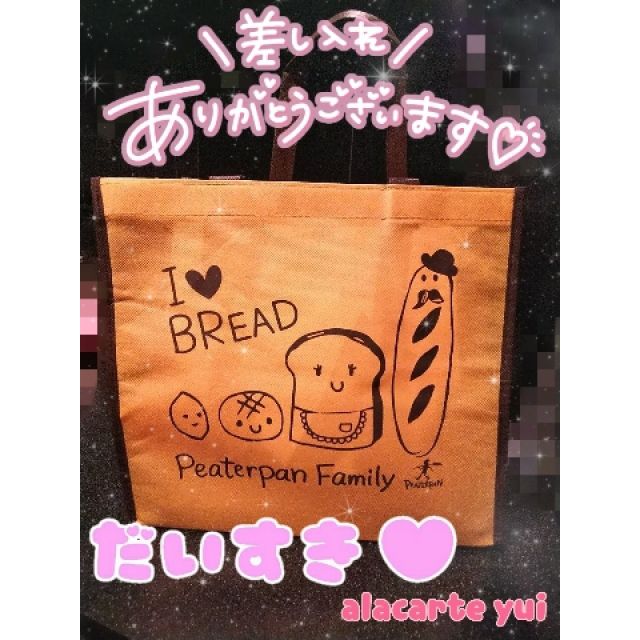 \差し入れ/
ありがとうございます♡
I ♥
BREAD
Peaterpan Family
だいすき♥
alacarte yui